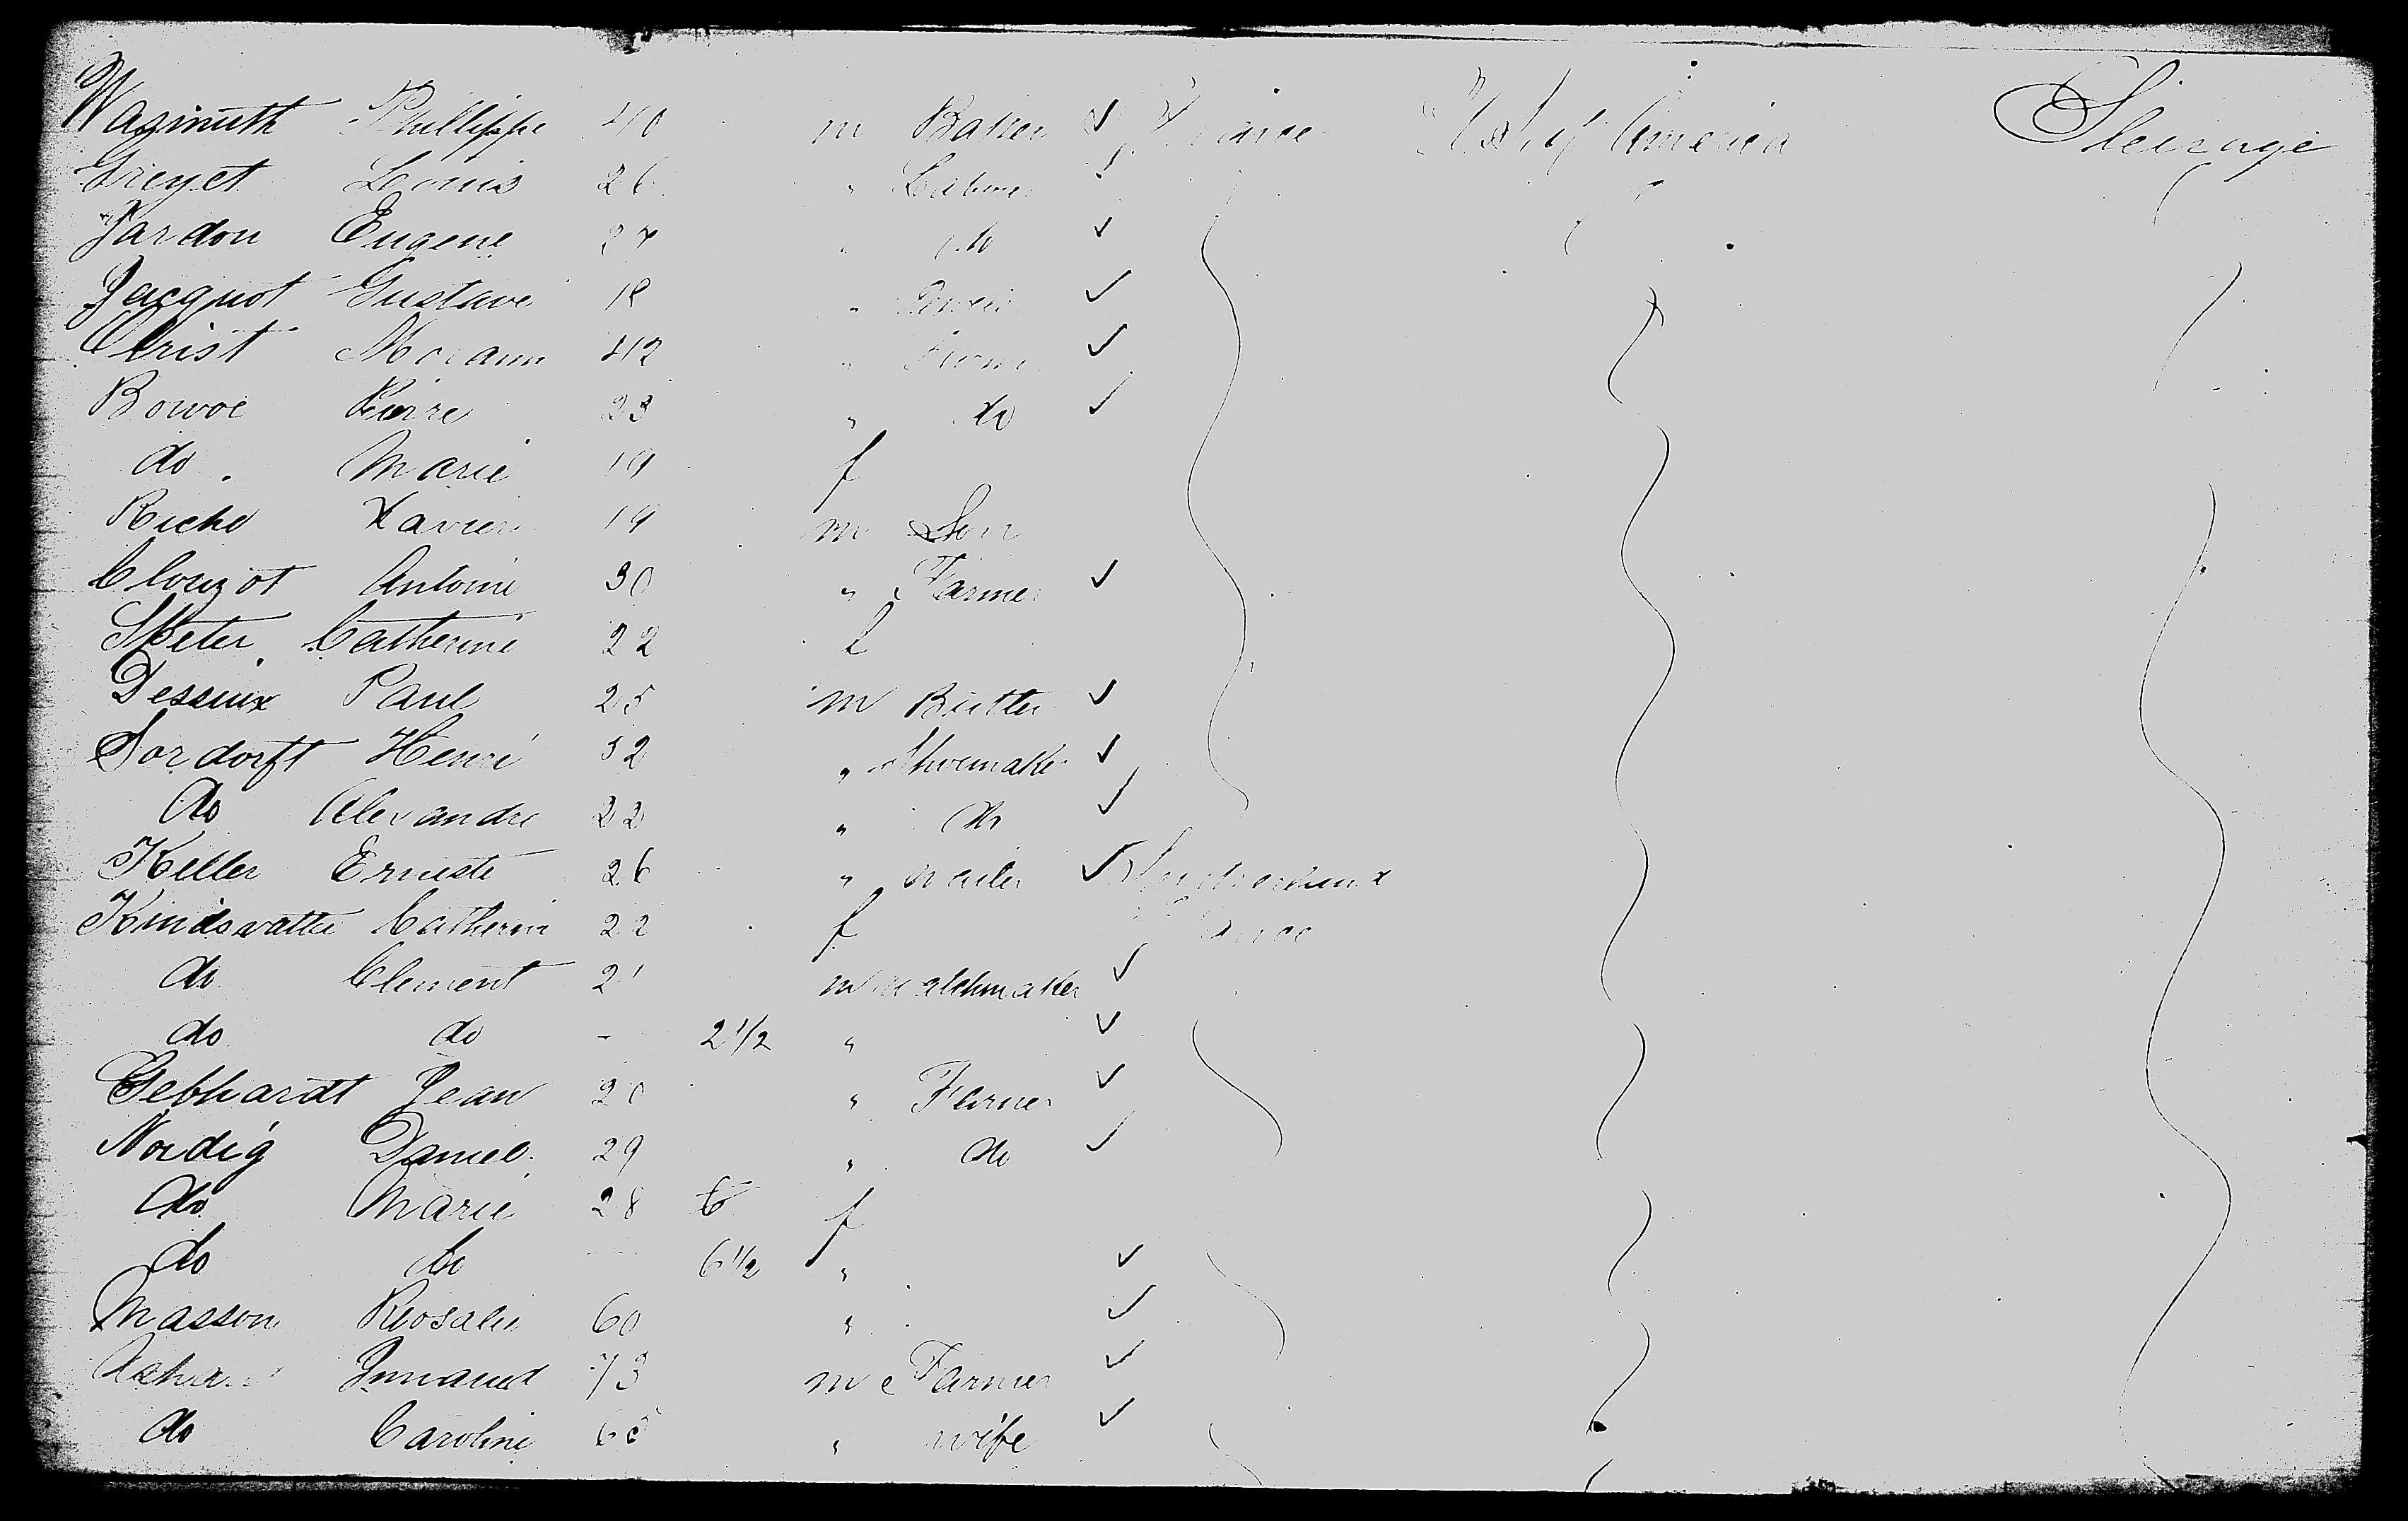 Waginuth Phillippe 40 m Baker ✓ France U S of America Steerage
Greyet Louis 26 " Labore ✓
Jardon Eugene 27 " do ✓
Jacquot Gustave 18 " ✓
Christ 42 " ✓
Bowoe Pierre 23 " do ✓
do Marie 19 f
Riche Xavier 19 m Son
Clouzot Antoine 30 " Farmer ✓
Sketer Catherine 22 f
Desseux Paul 25 m Butler ✓
Sordorft Henri 52 " Shoemaker ✓
do Alexandre 22 " do ✓
Keller Erneste 26 " ✓
Kindsvatter Catherine 22 f France
do Clement 21 m watchmaker ✓
do do - 2 1/2 " ✓
Gebhardt Jean 20 " Farmer ✓
Nordig Daniel 29 " do ✓
do Marie 28 6 f
do do 6 1/2 " ✓
Masson Rosalie 60 " ✓
73 m Farmer ✓
do Caroline 65 " wife ✓